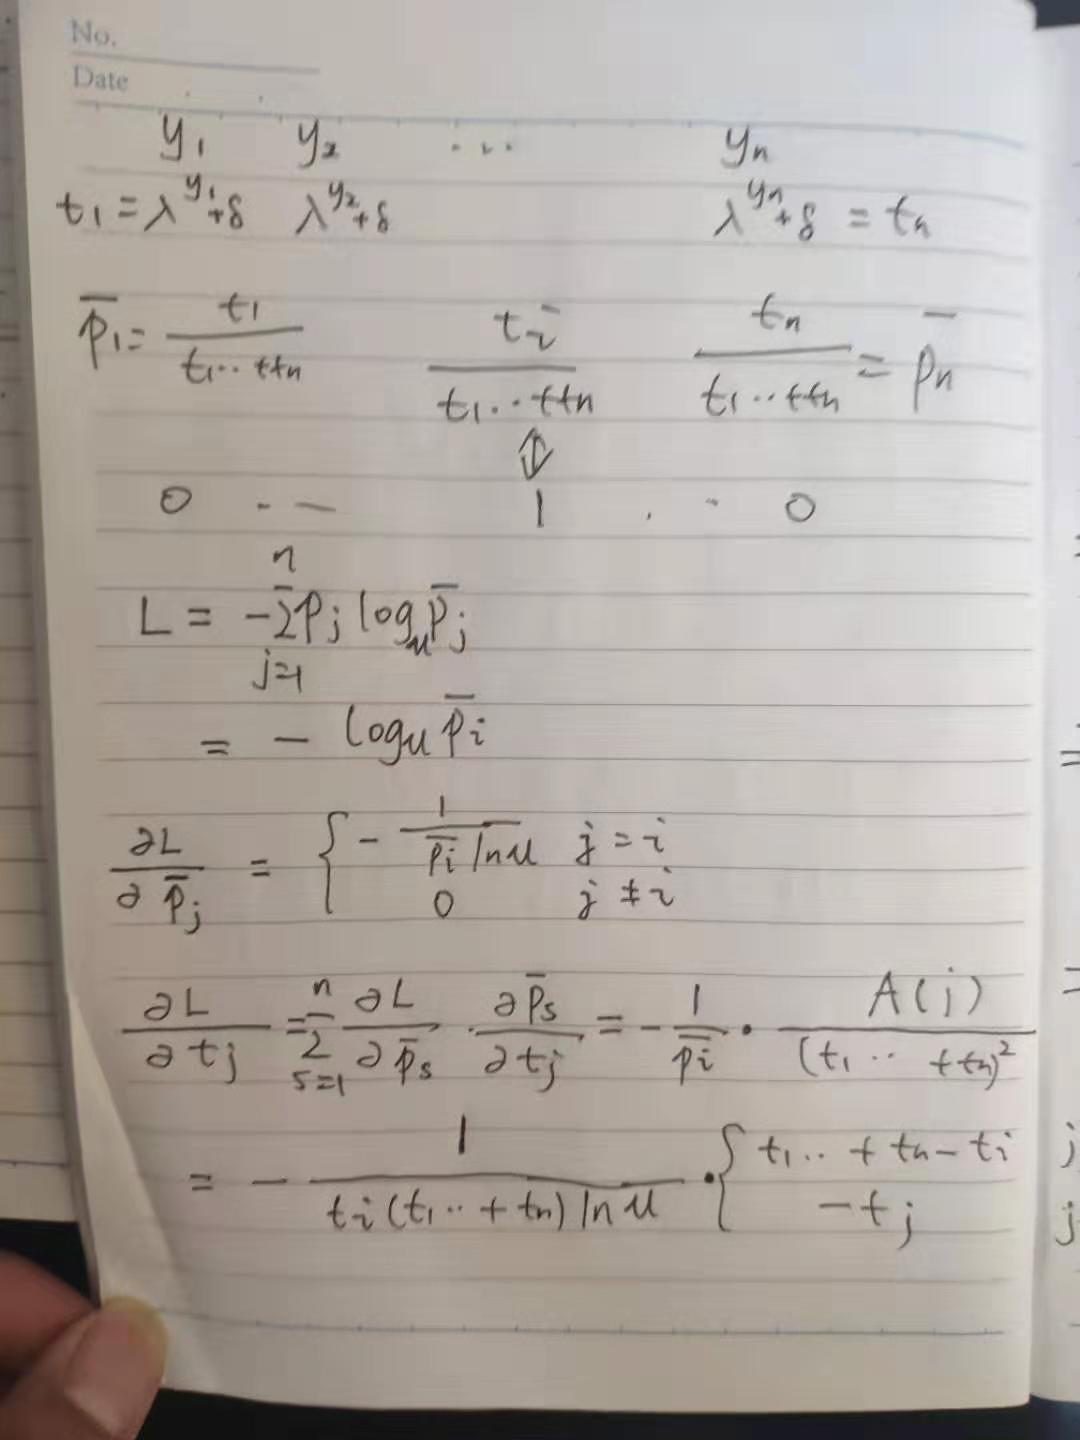 No.
Date
y₁ y₂ ... yₙ
t₁ = λ^y₁+δ λ^y₂+δ λ^yₙ+δ = tₙ
p̄₁ = t₁/(t₁..+tₙ) tᵢ/(t₁..+tₙ) tₙ/(t₁..+tₙ) = p̄ₙ
⇕
0 .. 1 . . 0
L = -Σ_{j=1}^{n} pⱼ log_μ p̄ⱼ
= - log_μ p̄ᵢ
∂L/∂p̄ⱼ = { - 1/(p̄ᵢ ln μ) j = i
0 j ≠ i
∂L/∂tⱼ = Σ_{s=1}^{n} ∂L/∂p̄ₛ · ∂p̄ₛ/∂tⱼ = - 1/p̄ᵢ · A(j)/(t₁.. + tₙ)²
= - 1/(tᵢ(t₁.. + tₙ) ln μ) · { t₁.. + tₙ - tᵢ j
-tⱼ j